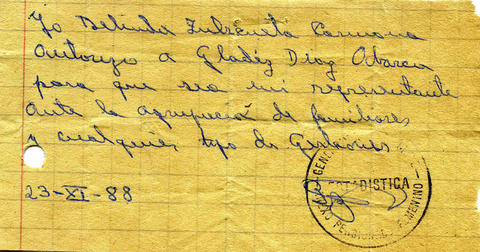 Yo Belinda Zubicueta Carmona
autorizo a Gladéz Diaz Abarca
para que sea mi representante
ante la agrupación de familiares
y cualquier tipo de Gestiones
23-XI-88
ESTADISTICA